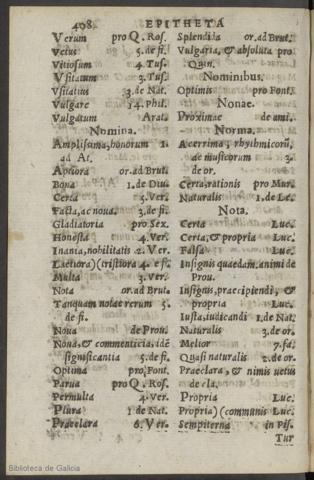 408. EPITHETA
Verum pro Q. Ros.
Vetus 5. de fi.
Vitiosum 4. Tus.
Vsitatum 3. Tus.
Vsitatius 3. de Nat.
Vulgare 14. Phil.
Vulgatum Arat.
Nomina.
Amplissima, honorum 1.
ad At.
Aptiora or. ad Brut.
Bona 1. de Diu.
Certa 5. Ver.
Facta, ac noua. 3. de fi.
Gladiatoria pro Sex.
Honesta 4. Ver.
Inania, nobilitatis 2. Ver.
Laetiora)(tristiora 4. e fi.
Multa 3. Ver.
Nota or. ad Bru.
Tanquam notae rerum 5.
de fi.
Noua de Prou.
Noua, & commenticia, idē
significantia 5. de fi.
Optima pro, Font.
Parua pro Q. Ros.
Permulta 4. Ver.
Plura 1. de Nat.
Praeclara 6. Ver.
Splendida or. ad Brut.
Vulgaria, & absoluta pro
Quin.
Nominibus.
Optimis pro Font.
Nonae.
Proximae de ami.
Norma.
Acerrima, rhythmicorū,
ac musicorum 3.
de or.
Certa, rationis pro Mur.
Naturalis 1. de Le.
Nota.
Certa Luc.
Certa, & propria Luc.
Falsa Luc.
Insignis quaedam. animi de
Prou.
Insignis, praecipiendi, &
propria Luc.
Iusta, iudicandi 1. de N.
Naturalis 3. de or.
Melior 7. fa.
Quasi naturalis 2. de or.
Praeclara, & nimis vetus
de cla.
Propria Luc.
Propria)(communis Luc.
Sempiterna in Pis.
Tur
Biblioteca de Galicia